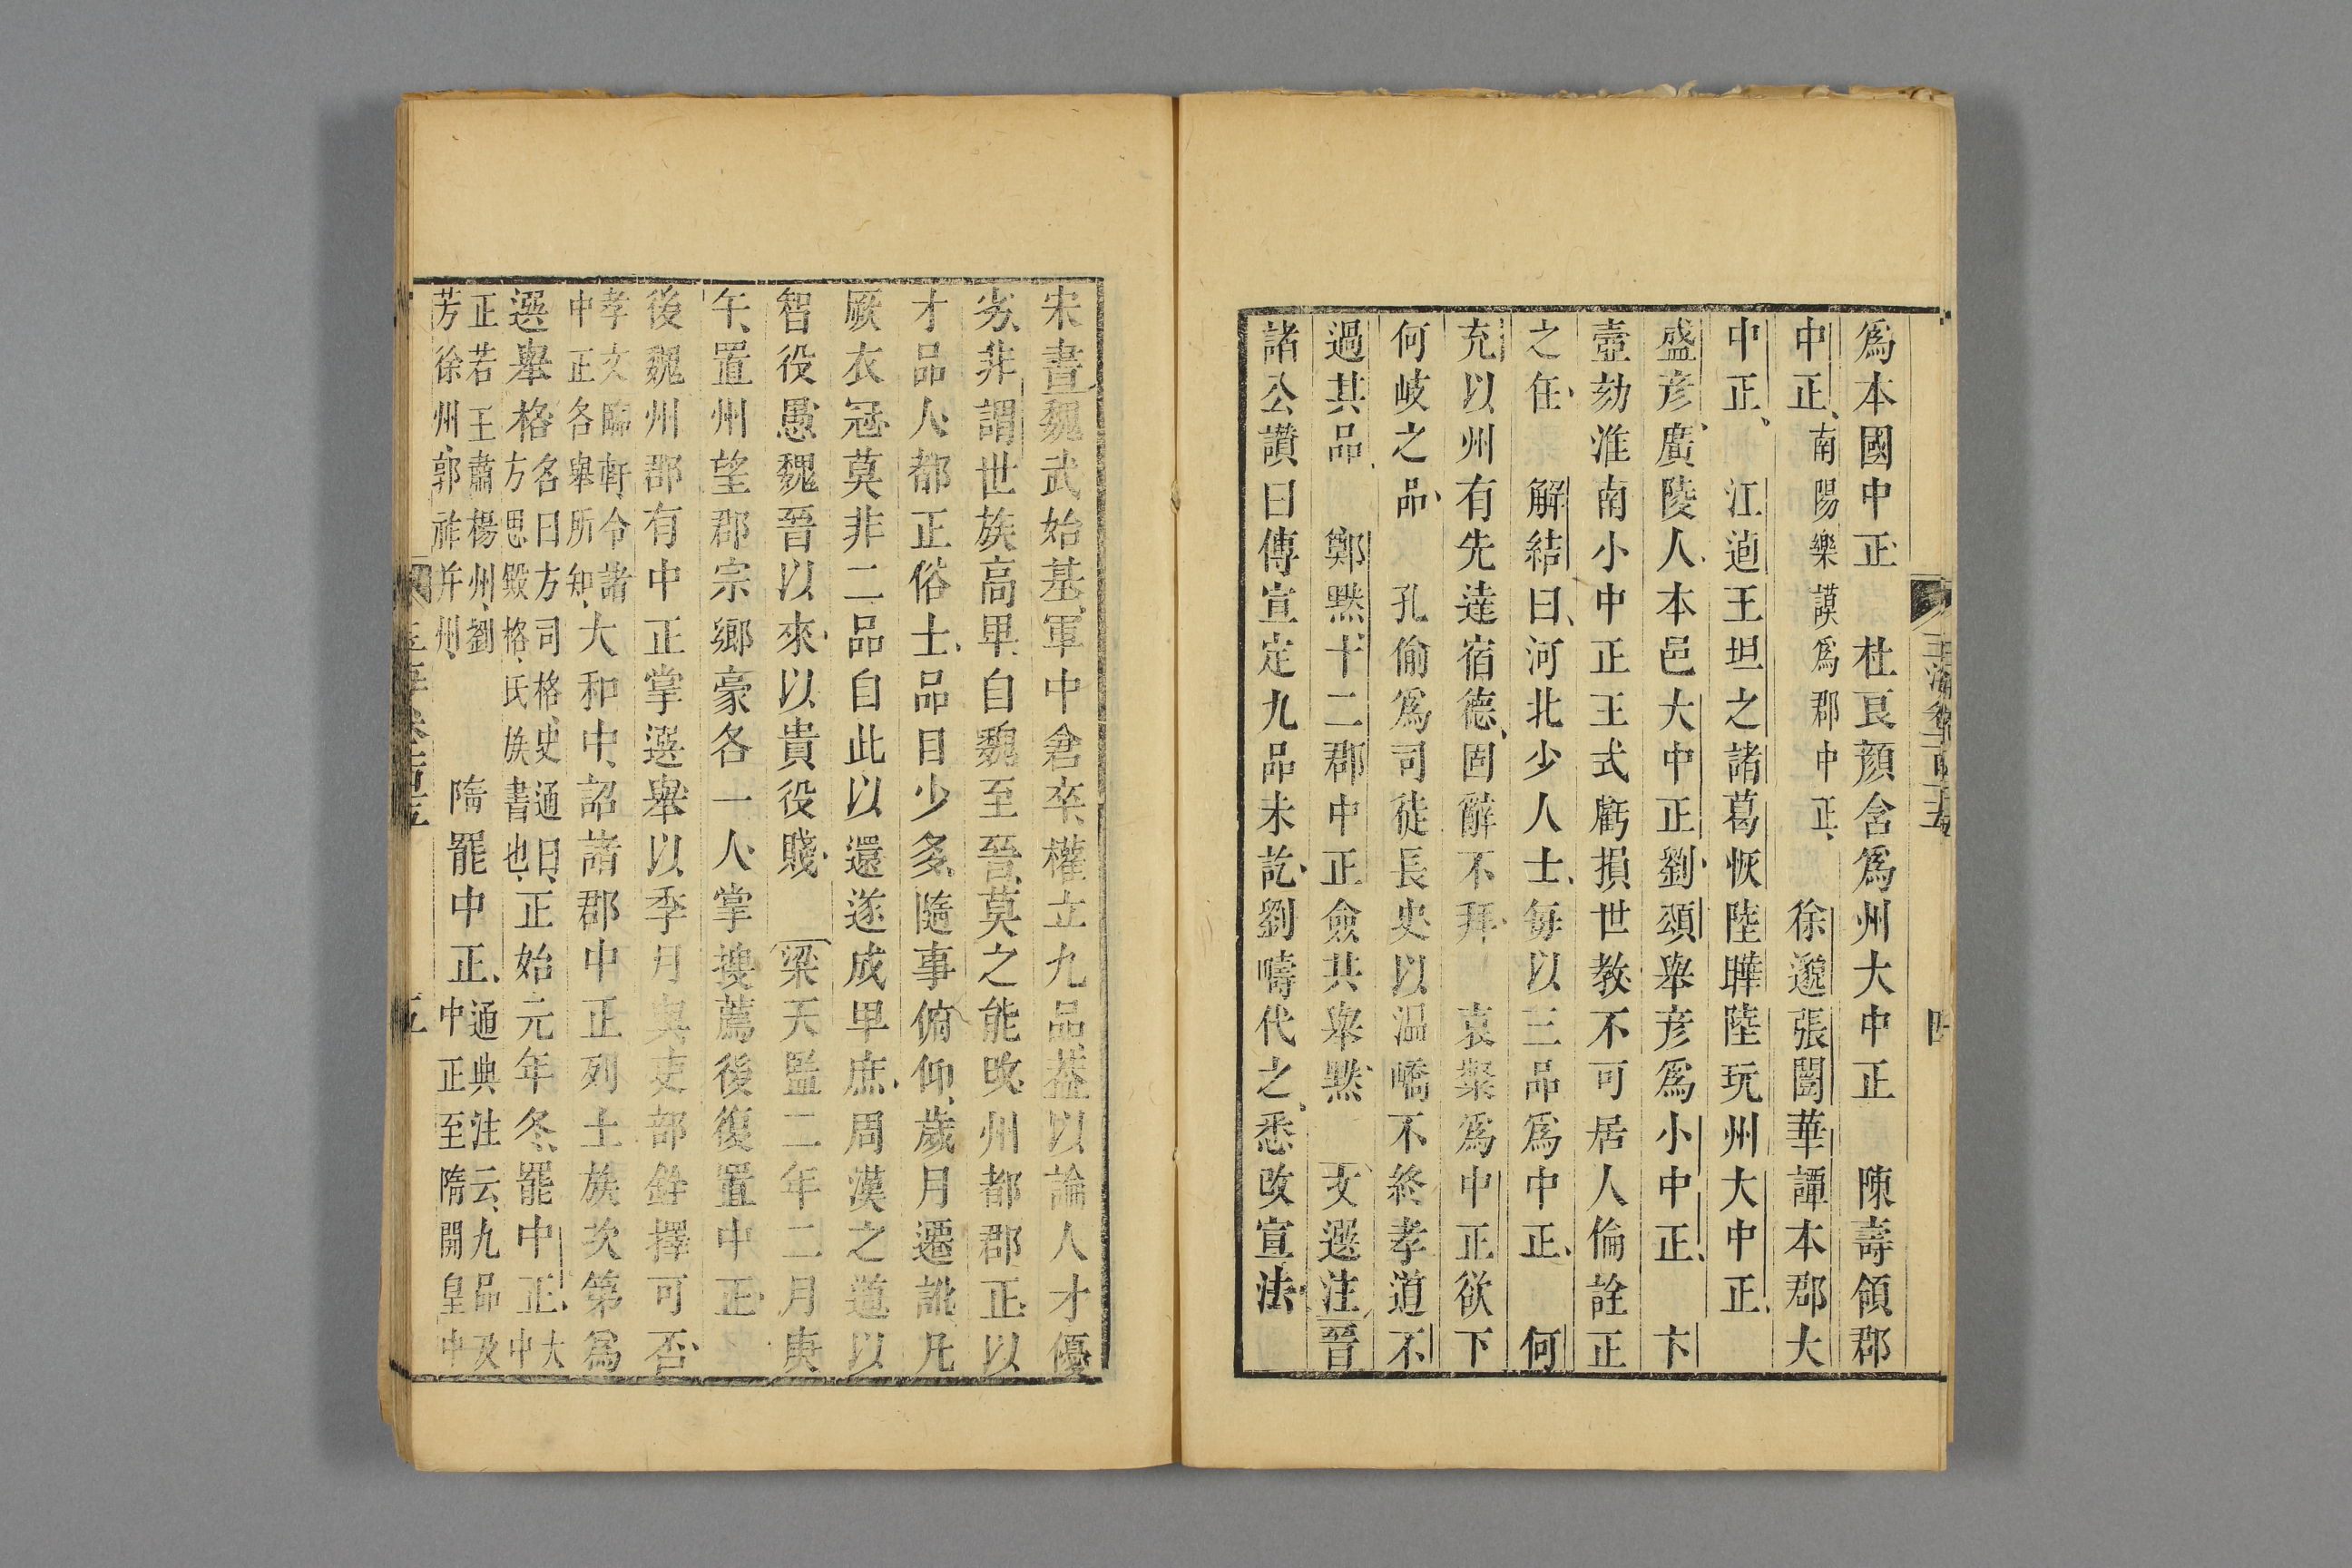 爲本國中正　杜艮顔含爲州大中正　陳壽領郡
中正南陽樂謨爲郡中正　徐邈張闓華譚本郡大
中正　江逌王坦之諸葛恢陸曄陸玩州大中正
盛彦廣陵人本邑大中正劉頌舉彦爲小中正　卞
壼劾淮南小中正王式虧損世教不可居人倫詮正
之任　解結曰河北少人士毎以三品爲中正　何
充以州有先達宿德固辭不拜　袁粲爲中正欲下
何岐之品　孔偷爲司徒長史以温嶠不終孝道不
過其品　鄭黙十二郡中正僉共舉黙　文選注晉
諸公讃曰傅宣定九品未訖劉疇代之悉改宣法
宋書魏武始基軍中倉卒權立九品葢以論人才優
劣非謂世族高卑自魏至晉莫之能改州都郡正以
才品人都正俗士品目少多隨事俯仰歲月遷訛凡
厥衣冠莫非二品自此以還遂成卑庶周漢之道以
智役愚魏晉以來以貴役賤　梁天監二年二月庚
午置州望郡宗鄉豪各一人掌搜薦後復置中正
後魏州郡有中正掌選舉以季月與吏部銓擇可否
孝文臨軒令諸
中正各舉所知大和中詔諸郡中正列士族次第爲
選舉格名曰方司格史通曰
方思毀格氏族書也正始元年冬罷中正大
中
正若王肅楊州劉
芳徐州郭祚并州　隋罷中正通典注云九品及
中正至隋開皇中